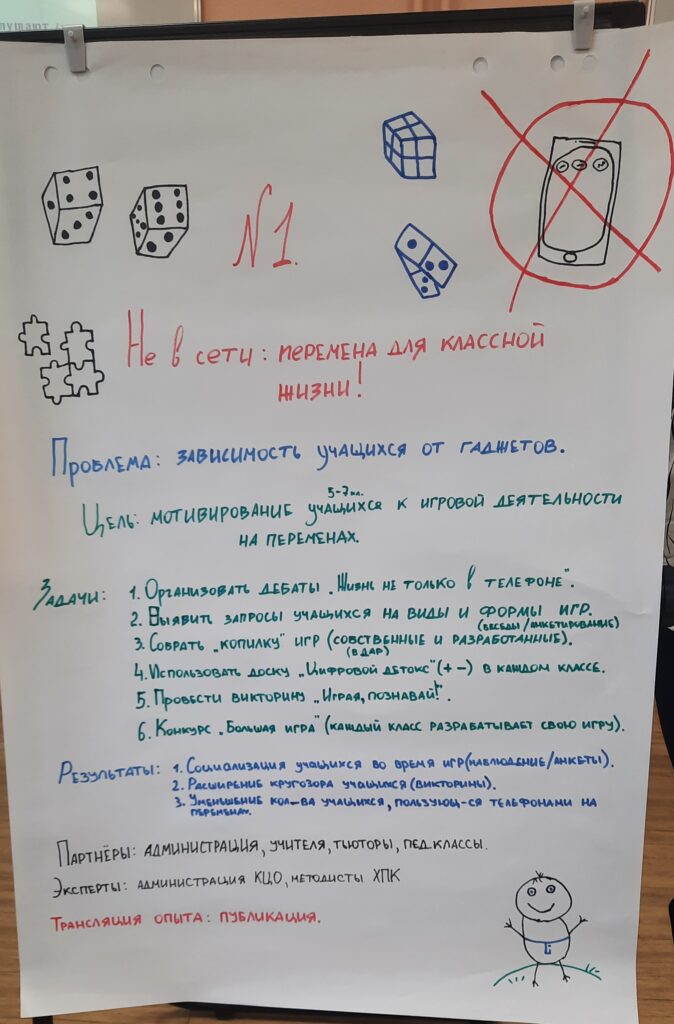 №1.
Не в сети: перемена для классной
жизни!
Проблема: зависимость учащихся от гаджетов.
5-7 кл.
Цель: мотивирование учащихся к игровой деятельности
на переменах.
Задачи: 1. Организовать дебаты „Жизнь не только в телефоне".
2. Выявить запросы учащихся на виды и формы игр.
(беседы/анкетирование)
3. Собрать „копилку" игр (собственные и разработанные).
(в дар)
4. Использовать доску „Цифровой детокс" (+ -) в каждом классе.
5. Провести викторину „Играя, познавай!".
6. Конкурс „Большая игра" (каждый класс разрабатывает свою игру).
Результаты: 1. Социализация учащихся во время игр (наблюдение/анкеты).
2. Расширение кругозора учащихся (викторины).
3. Уменьшение кол-ва учащихся, пользующ-ся телефонами на
переменах.
Партнёры: администрация, учителя, тьюторы, пед.классы.
Эксперты: администрация КЦО, методисты ХПК
Трансляция опыта: публикация.